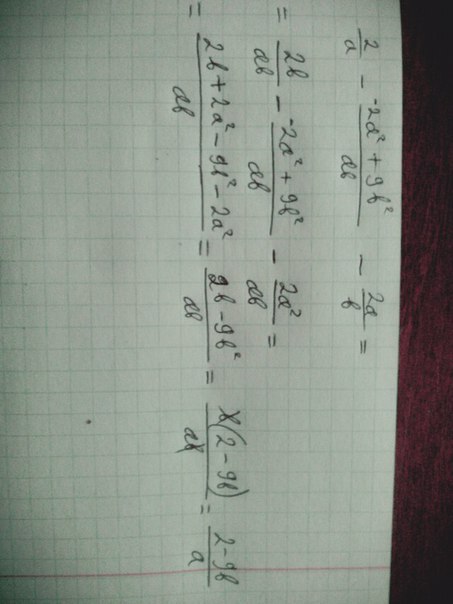 2/a - (-2a² + 9b²)/ab - 2a/b =
= 2b/ab - (-2a² + 9b²)/ab - 2a²/ab =
= (2b + 2a² - 9b² - 2a²)/ab = (2b - 9b²)/ab = b(2 - 9b)/ab = (2 - 9b)/a